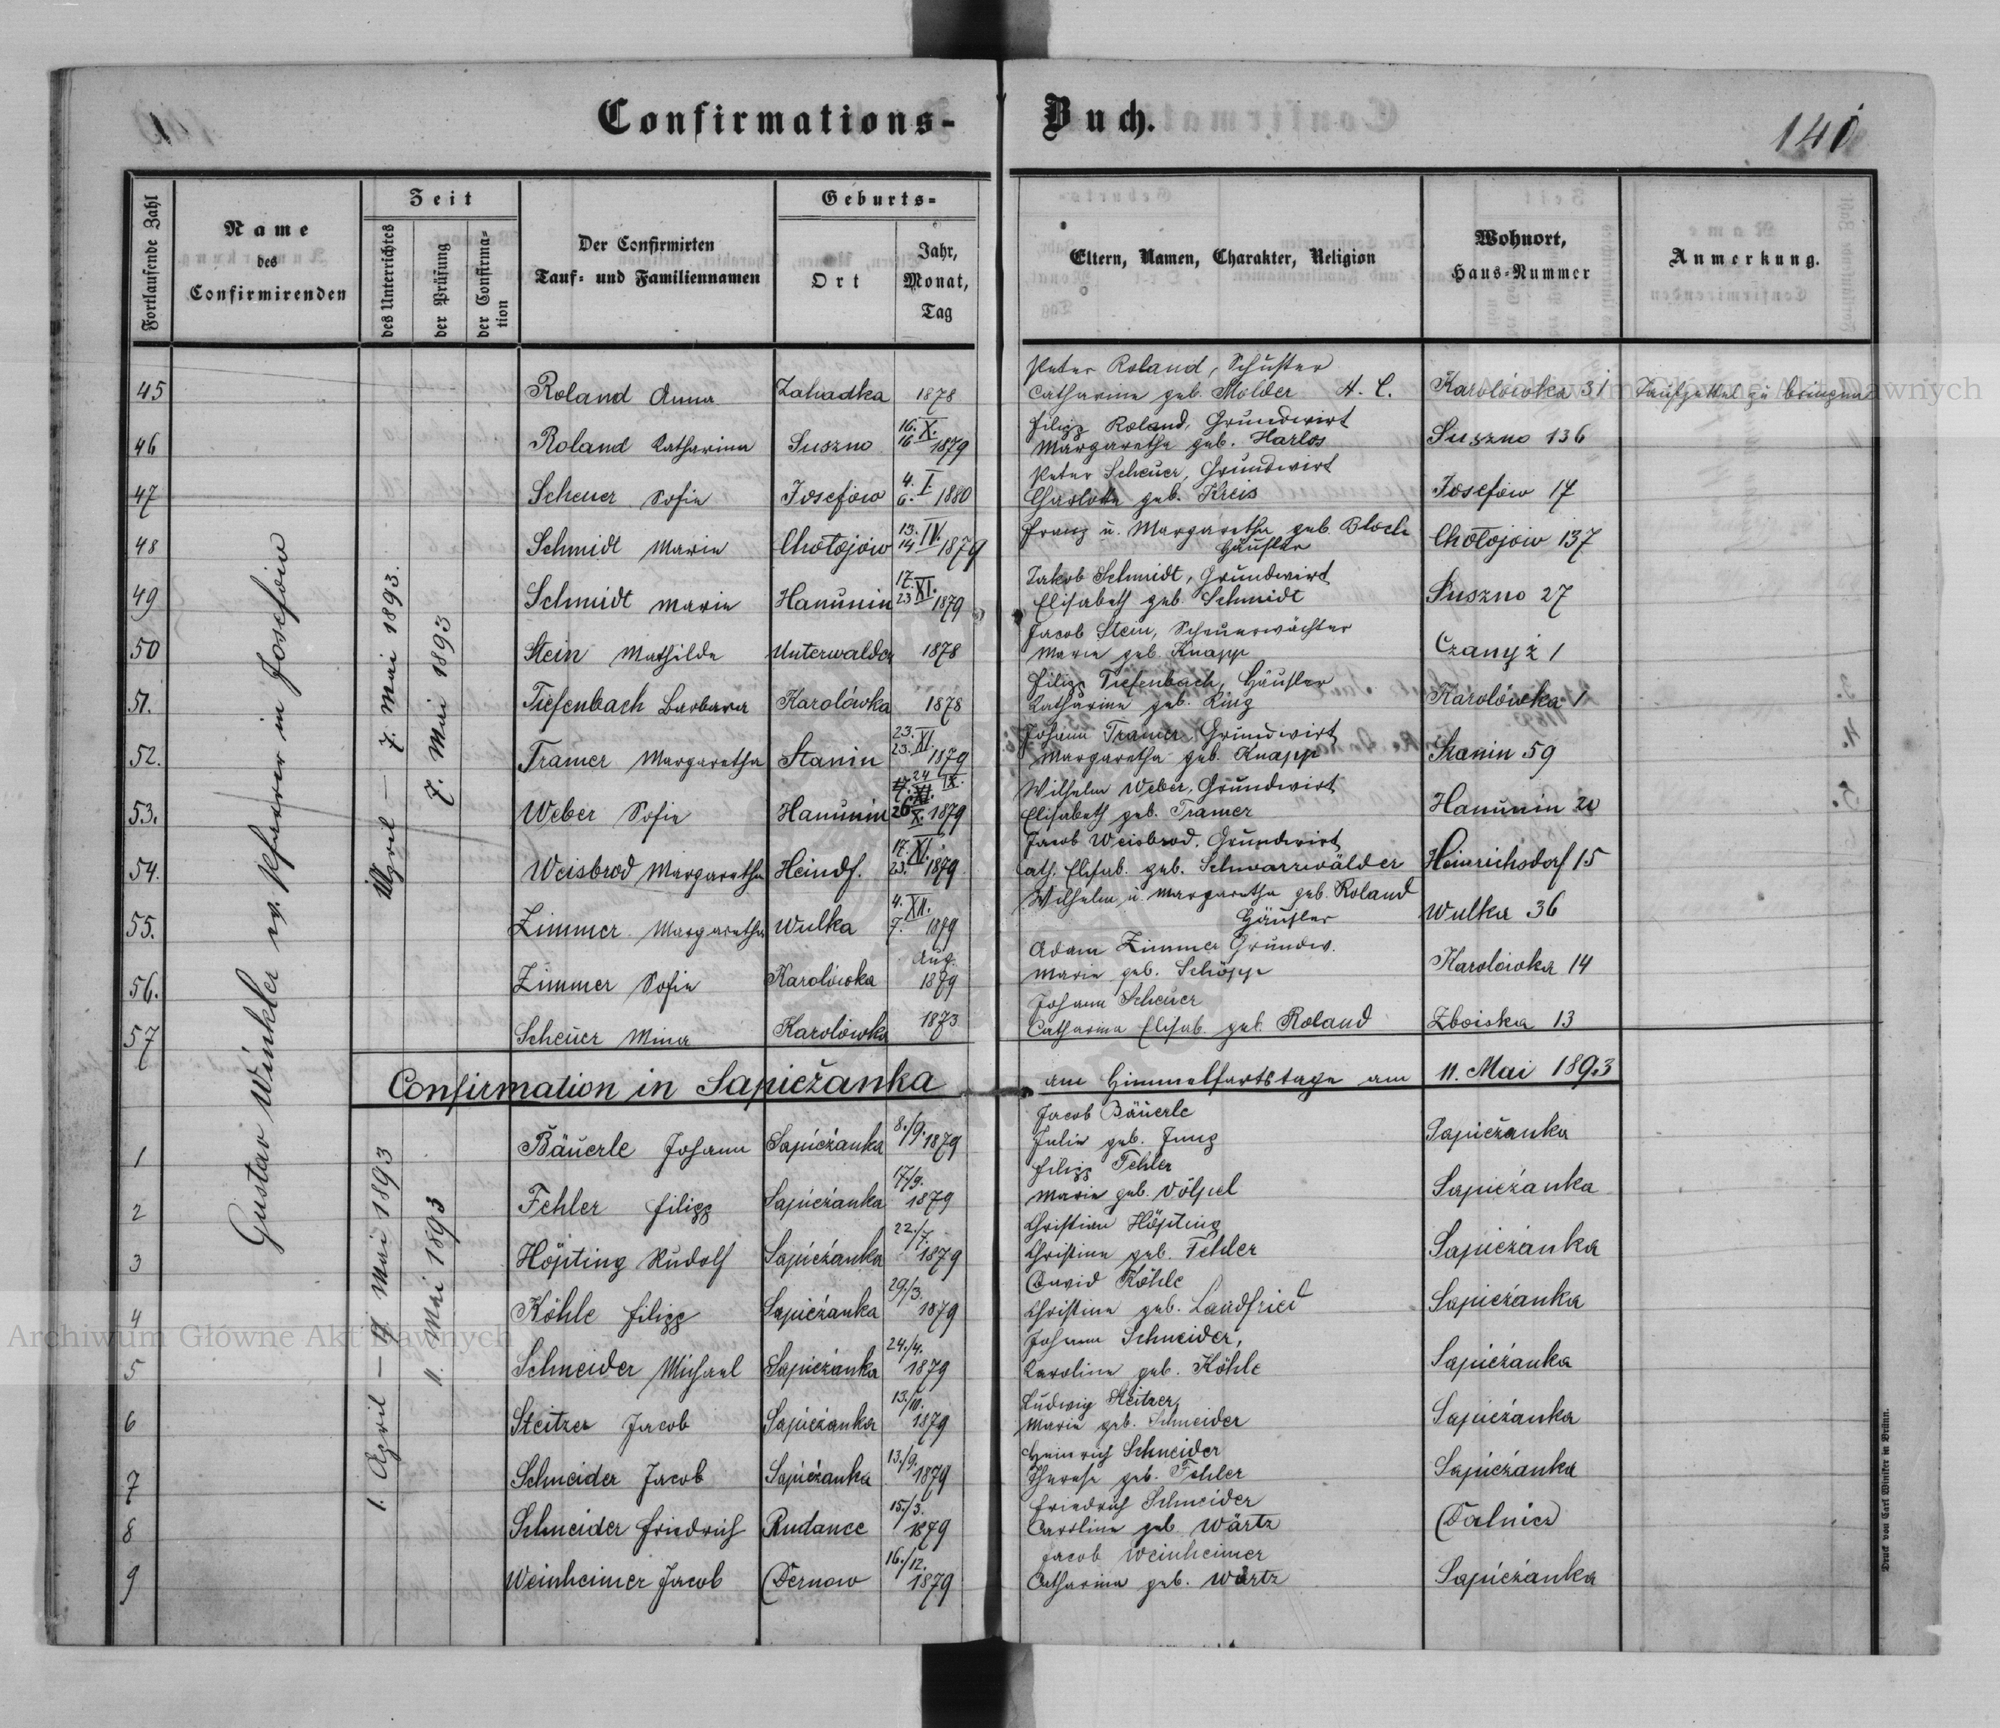 Confirmations-Buch.
141
Fortlaufende Zahl
Name des Confirmirenden
Zeit
des Unterrichtes
der Prüfung
der Confirmation
Der Confirmirten Tauf- und Familiennamen
Geburts-
Ort
Jahr, Monat, Tag
Eltern, Namen, Charakter, Religion
Wohnort, Haus-Nummer
Anmerkung.
Gustav Winkler ev. Pfarrer in Josefów
April — 7. Mai 1893.
7. Mai 1893
Peter Roland, Schuster
45 Roland Anna Zahadka 1878 Catharine geb. Molder H. C. Karolówka 31 Taufzettel zu bringen
Filipp Roland, Grundwirt
46 Roland Katharina Suszno 16. 16 X. 1879 Margaretha geb. Harlos Suszno 136
Peter Scheuer, Grundwirt
47 Scheuer Sofie Josefów 4. 6. I 1880 Charlotte geb. Kreis Josefów 17
48 Schmidt Marie Chołojów 13. 14 IV. 1879 Franz u. Margaretha geb. Bloch Chołojów 137
Häusler
Jakob Schmidt, Grundwirt
49 Schmidt Marie Hanunin 17. 23 XI. 1879 Elisabeth geb. Schmidt Suszno 27
Jacob Stein, Scheuerwächter
50 Stein Mathilde Unterwalden 1878 Marie geb. Knapp Czanyż 1
Filipp Tiefenbach, Häusler
51. Tiefenbach Barbara Karolówka 1878 Katharine geb. Karolówka 1
Johann Tramer, Grundwirt
52. Tramer Margaretha Stanin 23. 23. XI. 1879 Margaretha geb. Knapp Stanin 59
Wilhelm Weber, Grundwirt
53. Weber Sofie Hanunin 24 IX. 26 X. 1879 Elisabeth geb. Tramer Hanunin 20
Jacob Weisbrod, Grundwirt
54. Weisbrod Margaretha Heindf. 17. 23. XI. 1879 Cath. Elisab. geb. Schwarzwälder Heinrichsdorf 15
Wilhelm u. Margaretha geb. Roland
55. Zimmer Margaretha Wulka 4. 7. XII. 1879 Häusler Wulka 36
Adam Zimmer Grundw.
56. Zimmer Sofie Karolówka Aug. 1879 Marie geb. Schöpp Karolówka 14
Johann Scheuer
57 Scheuer Mina Karolówka 1873 Catharina Elisab. geb. Roland Zboiska 13
Confirmation in Sapieżanka am Himmelfartstage am 11. Mai 1893
1. April — 9. Mai 1893
11. Mai 1893
Jacob Bäuerle
1 Bäuerle Johann Sapieżanka 8./9. 1879 Julie geb. Jung Sapieżanka
Filipp Fehler
2 Fehler Filipp Sapieżanka 17./9. 1879 Marie geb. Völpel Sapieżanka
Christian Höpting
3 Höpting Rudolf Sapieżanka 22./7. 1879 Christine geb. Fehler Sapieżanka
David Köhle
4 Köhle Filipp Sapieżanka 29./3. 1879 Christine geb. Landfried Sapieżanka
Johann Schneider,
5 Schneider Michael Sapieżanka 24./4. 1879 Karoline geb. Köhle Sapieżanka
Ludwig Steitzer,
6 Steitzer Jacob Sapieżanka 13./11. 1879 Marie geb. Schneider Sapieżanka
Heinrich Schneider
7 Schneider Jacob Sapieżanka 13./9. 1879 Therese geb. Fehler Sapieżanka
Friedrich Schneider
8 Schneider Friedrich Rudance 15./3. 1879 Caroline geb. Wärtz Dalnicz
Jacob Weinheimer
9 Weinheimer Jacob Dernow 16./12. 1879 Catharina geb. Wärtz Sapieżanka
Druck von Carl Winiker in Brünn.
Archiwum Główne Akt Dawnych
Archiwum Główne Akt Dawnych